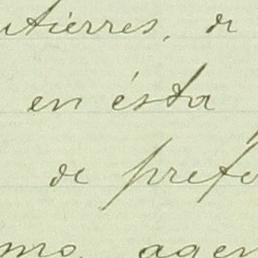 utiérres, de
en ésta
de prefe
mo, agen